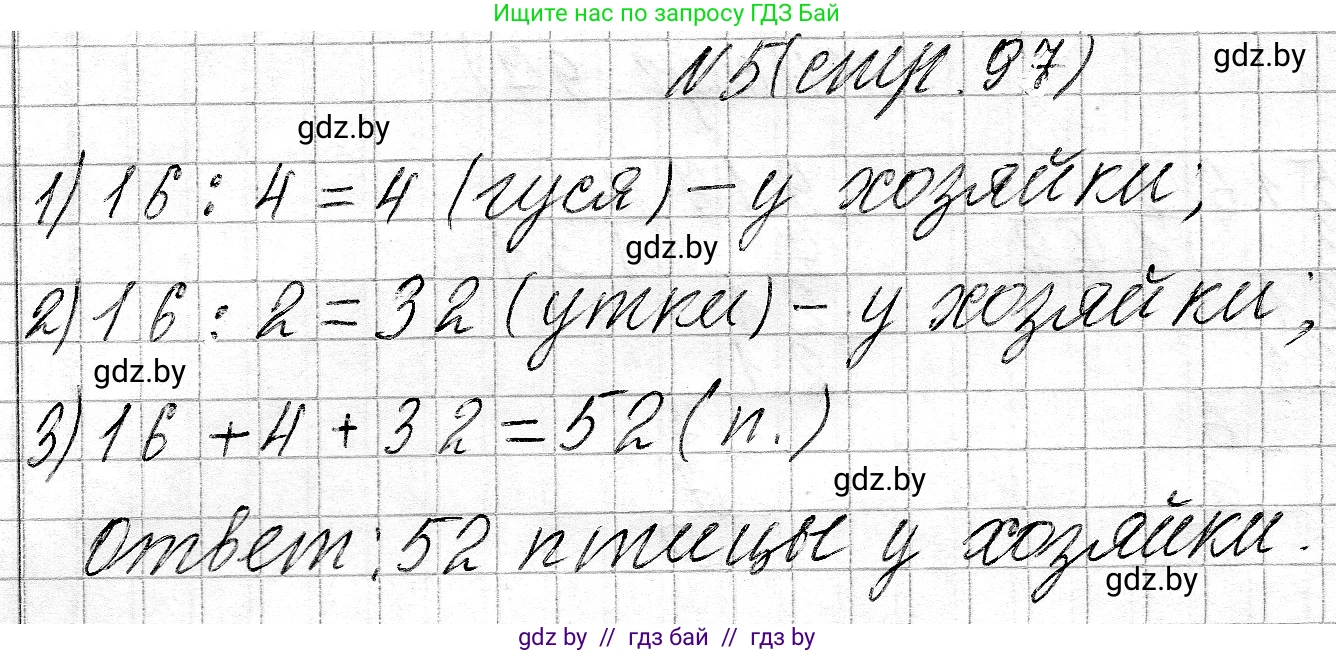 Ищите нас по запросу ГДЗ Бай
№5 (стр. 97)
gdz.by
gdz.by
1) 16 : 4 = 4 (гуся) – у хозяйки;
gdz.by
2) 16 : 2 = 32 (утки) – у хозяйки;
gdz.by
3) 16 + 4 + 32 = 52 (п.)
gdz.by
Ответ: 52 птицы у хозяйки.
gdz.by
gdz by // гдз бай // гдз by